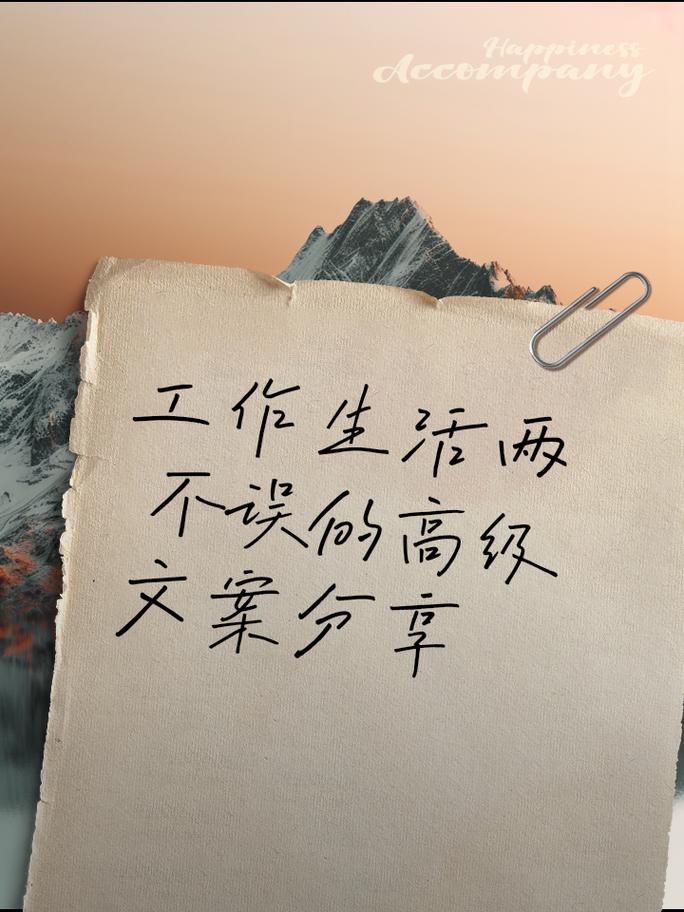 Happiness
Accompany
工作生活两
不误的高级
文案分享